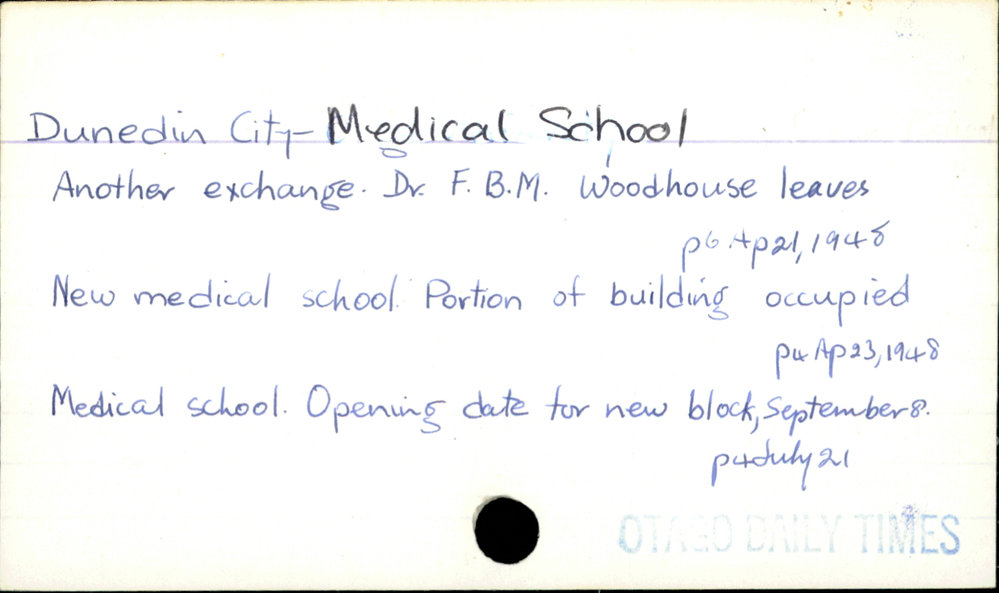 Dunedin City - Medical School
Another exchange. Dr. F. B. M. Woodhouse leaves
p6 Ap 21, 1948
New medical school. Portion of building occupied
p4 Ap 23, 1948
Medical school. Opening date for new block, September 8.
p4 July 21
OTAGO DAILY TIMES